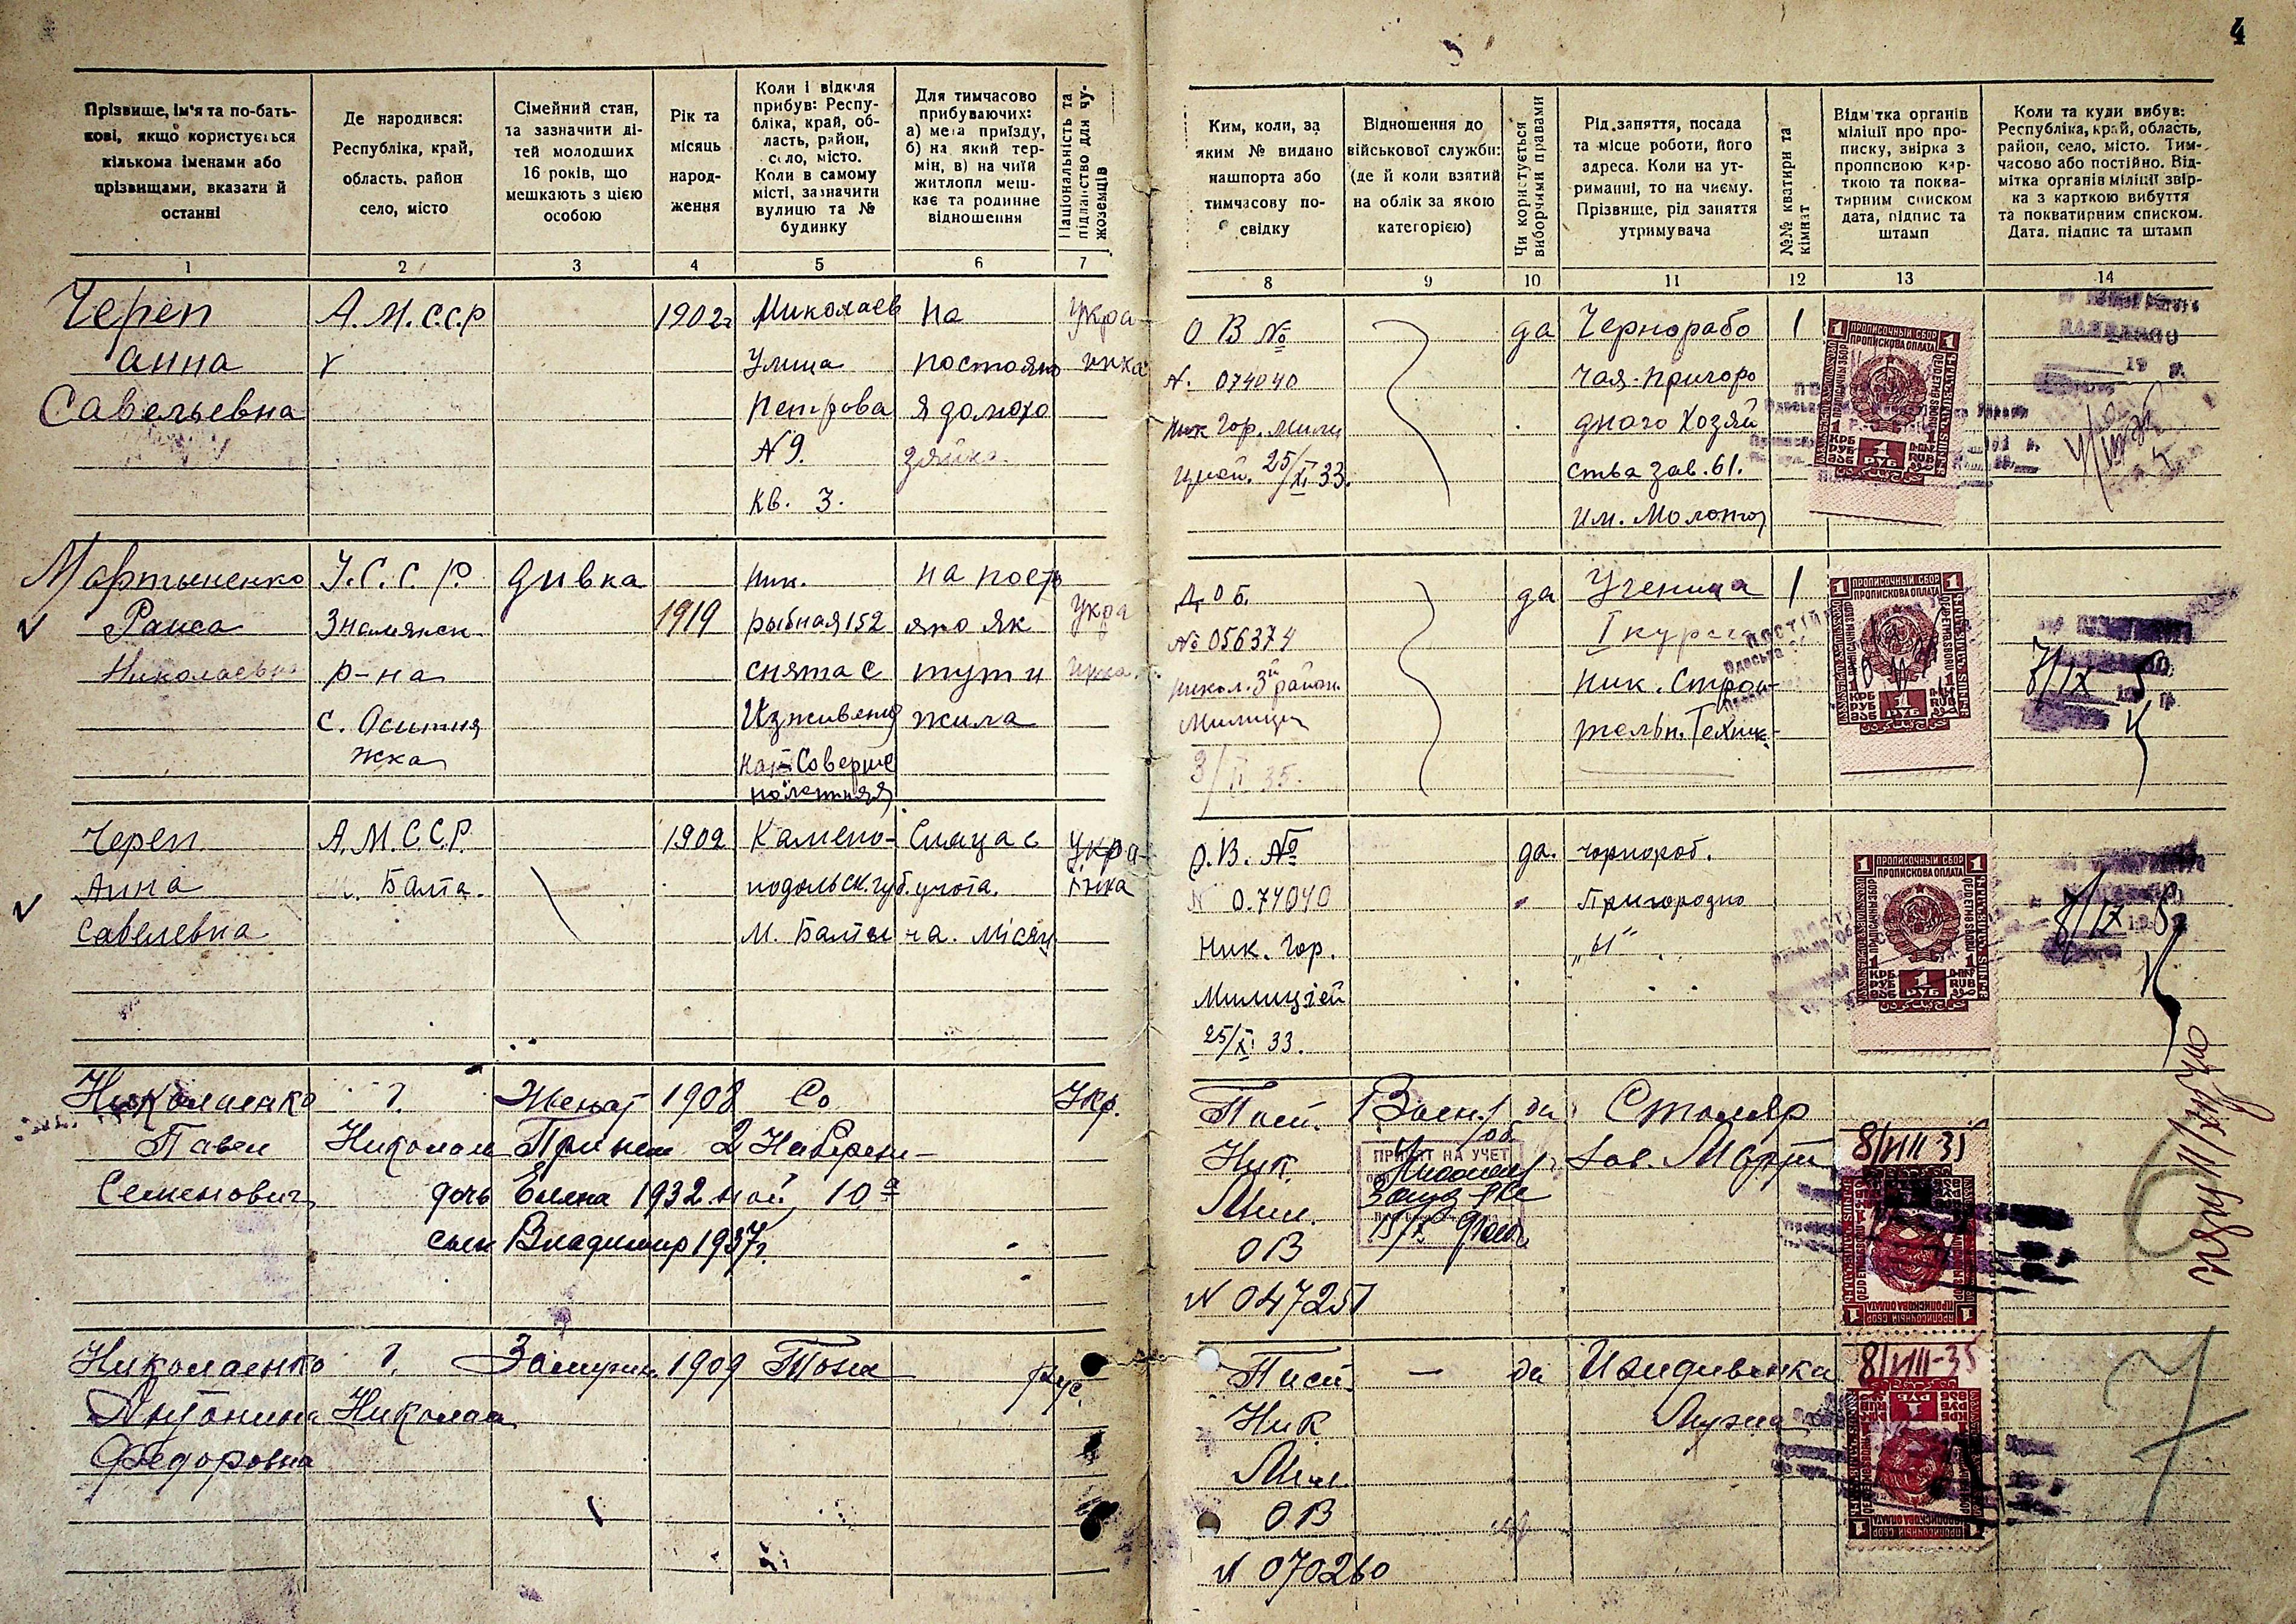 4
Прізвище, ім'я та по-бать-
кові, якщо користується
кількома іменами або
прізвищами, вказати й
останні
Де народився:
Республіка, край,
область, район
село, місто
Сімейний стан,
та зазначити ді-
тей молодших
16 років, що
мешкають з цією
особою
Рік та
місяць
народ-
ження
Коли і відкіля
прибув: Респу-
бліка, край, об-
ласть, район,
село, місто.
Коли в самому
місті, зазначити
вулицю та №
будинку
Для тимчасово
прибуваючих:
а) мета приїзду,
б) на який тер-
мін, в) на чиїй
житлопл меш-
кає та родинне
відношення
Національність та
підданство для чу-
жоземців
Ким, коли, за
яким № видано
пашпорта або
тимчасову по-
свідку
Відношення до
військової служби:
(де й коли взятий
на облік за якою
категорією)
Чи користується
виборчими правами
Рід заняття, посада
та місце роботи, його
адреса. Коли на ут-
риманні, то на чиєму.
Прізвище, рід заняття
утримувача
№№ квартири та
кімнат
Відм'тка органів
міліції про про-
писку, звірка з
прописною кар-
ткою та поква-
тирним списком
дата, підпис та
штамп
Коли та куди вибув:
Республіка, край, область,
район, село, місто. Тим-
часово або постійно. Від-
мітка органів міліції звір-
ка з карткою вибуття
та покватирним списком.
Дата, підпис та штамп
1 2 3 4 5 6 7 8 9 10 11 12 13 14
Череп
Анна
Савельевна
А.М.С.С.Р
1902г
Николаев
Улица
Петрова
N 9.
кв. 3.
На
постояно
я домохо
зяйка.
Укра-
инка
О В №
N. 074040
Ник Гор. Мили
цией. 25/XI 33.
да
Чернорабо
чая-пригоро
дного Хозяй
ства зав. 61.
им. Молотов
1
ПРОПИСОЧНЫЙ СБОР
ПРОПИСКОВА ОПЛАТА
1 РУБ
Мартыненко
Раиса
Николаевна
У.С.С.Р.
Знамянск
р-на
с. Оситня
жка
дивка
1919
Ник.
рыбная 152
снята с
Иждивения
как Соверше
нолетняя
на пост
яно як
тут и
жила
Укра
инка
№ 056374
Никол. 3й район.
Милиции
3/II 35.
да
Ученица
I курса
Ник. Строи-
тельн. Техник.
1
ПРОПИСОЧНЫЙ СБОР
ПРОПИСКОВА ОПЛАТА
1 РУБ
8/IX
Череп
Анна
Савелевна
А.М.С.С.Р.
М. Балта.
1902
Камено-
подольск. губ.
М. Балты
Снята с
учота.
на. місяц
Укра-
їнка
О.В. №
N 0.74040
Ник. Гор.
Милицией
25/XI 33.
да.
чорнороб.
Пригородно
„61“
ПРОПИСОЧНЫЙ СБОР
ПРОПИСКОВА ОПЛАТА
1 РУБ
8/IX
Николаенко
Павел
Семенович
г.
Николаев
Женат
1908
Со
2 Набереж-
ной 10а
дочь Елена 1932
сын Владимир 1937г.
Укр.
Посп.
Ник.
Мил.
ОВ
N 047251
Воен.
об.
ПРИНЯТ НА УЧЕТ
да
Столяр
Зав. Марти
8/VIII 35
ПРОПИСОЧНЫЙ СБОР
ПРОПИСКОВА ОПЛАТА
6
Николаенко
Антонина
Федоровна
г.
Николаев
Замужн.
1909
Тоже
Рус.
Посп.
Ник
Мил.
ОВ
N 070260
—
да
Иждивенка
Мужа
8/VIII-35
ПРОПИСОЧНЫЙ СБОР
ПРОПИСКОВА ОПЛАТА
7